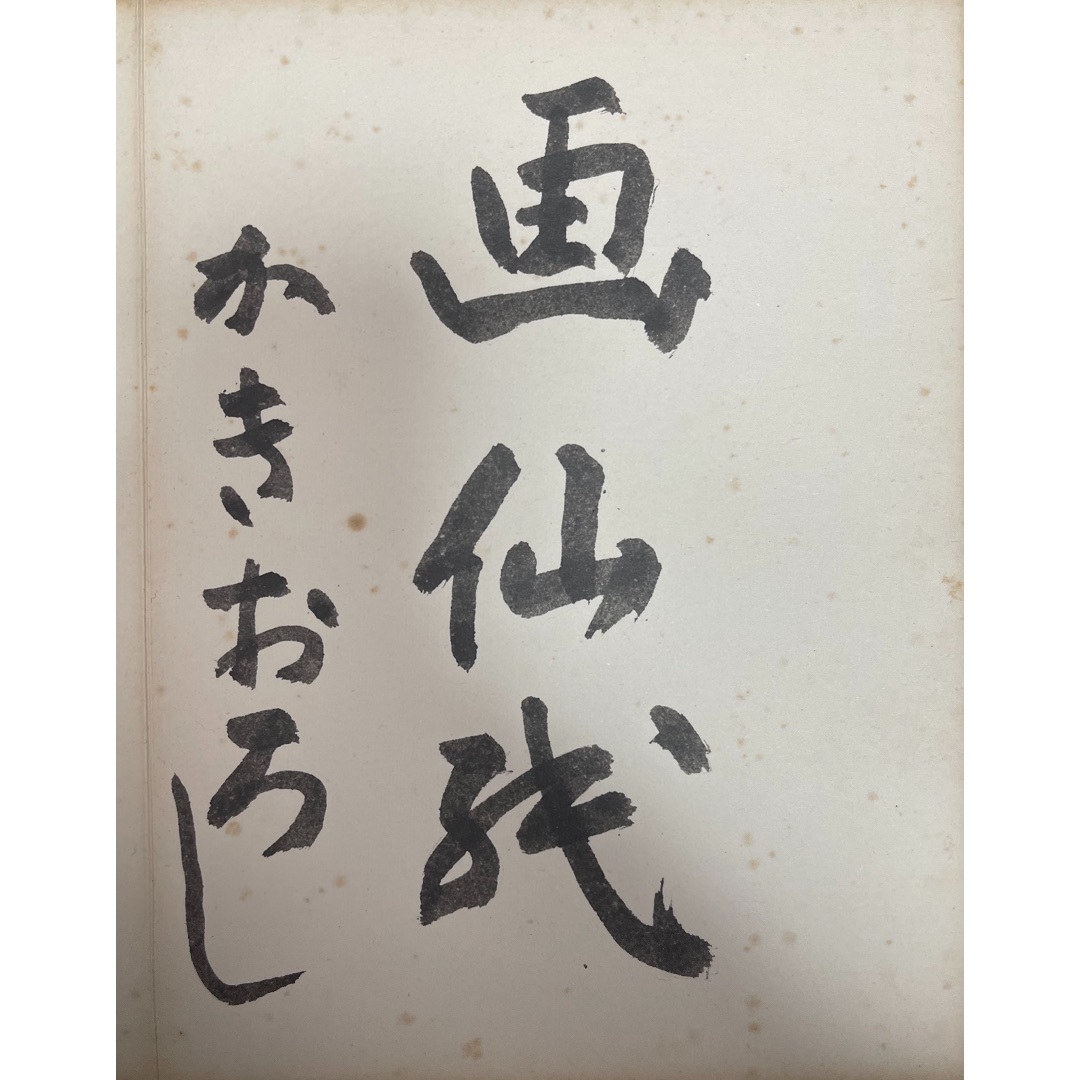 画仙残
かきおろし